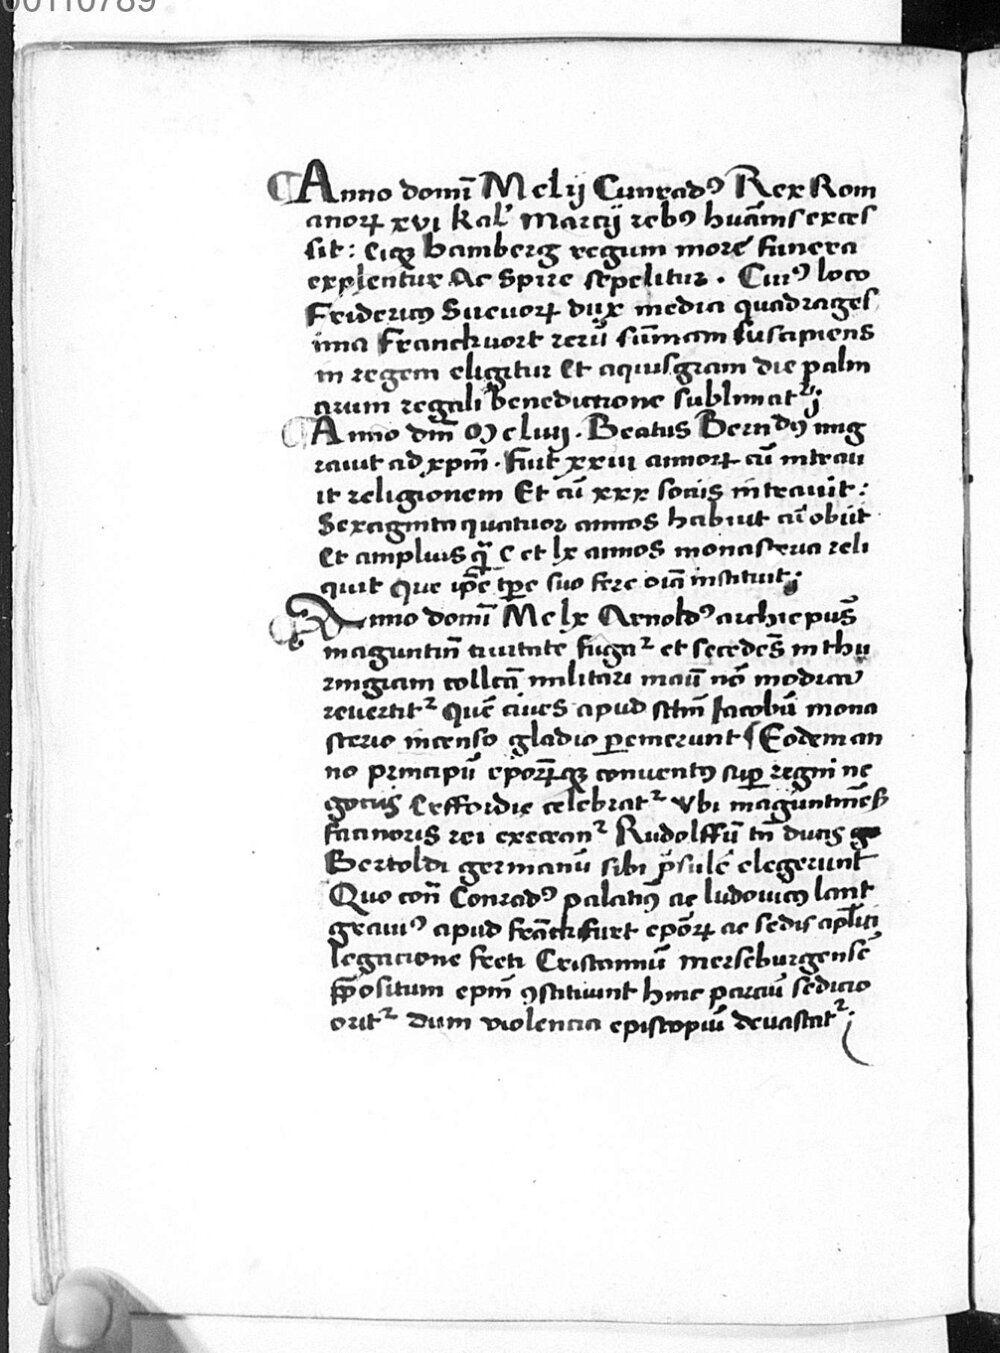 00110789
Anno domī Mclij Cunradꝰ Rex Rom
anorꝝ xvi kalꝰ Marcij rebꝰ hūanis exces
sit: eiqꝫ bamberg regum more funera
explentur Ac Spire sepelitur. Cuiꝰ loco
Fridericꝰ Sueuorꝝ dux media quadrages
ima Franckuort rerū sūmam suscipiens
in regem eligitur Et aquisgram die palm
arum regali benedictione sublimatᷣ;
Anno dm̄ Mcliij. Beatus Berndꝰ mig
rauit ad xpm̄. Fuit xxiii annorꝝ cū intrau
it religionem Et cū xxx socijs intrauit:
Sexaginta quatuor annos habuit cū obijt
Et amplius qᷓ c et lx annos monasteria reli
quit que ip̄e tp̄e suo fere oīa instituit;
Anno domī Mclx Arnoldꝰ archiepus̄
maguntin̄ ciuitate fugaᷣ et secedēs in thu
ringiam collecā militari manū nō modica
reuertitᷣ Quē ciues apud sctm̄ Jacobū mona
sterio incenso gladio ꝑemerunt ¶ Eodem an
no principū eporꝝqꝫ conuentꝰ suꝑ regni ne
gocijs Erffordie celebratᷣ vbi magūtinēs
facinoris rei execranᷣ Rudolffū tn̄ ducis
Bertoldi germanū sibi p̄sulē elegerunt
Quo con̄ Conradꝰ palatinꝰ ac ludouicꝰ lant
grauiꝰ apud franckfurt eporꝝ ac sedis apl̄ici
legacione freti Cristannū merseburgensē
p̄positum epm̄ ꝯstituunt hinc parciū sedicio
oritᷣ dum violencia episcopiū deuastatᷣ.